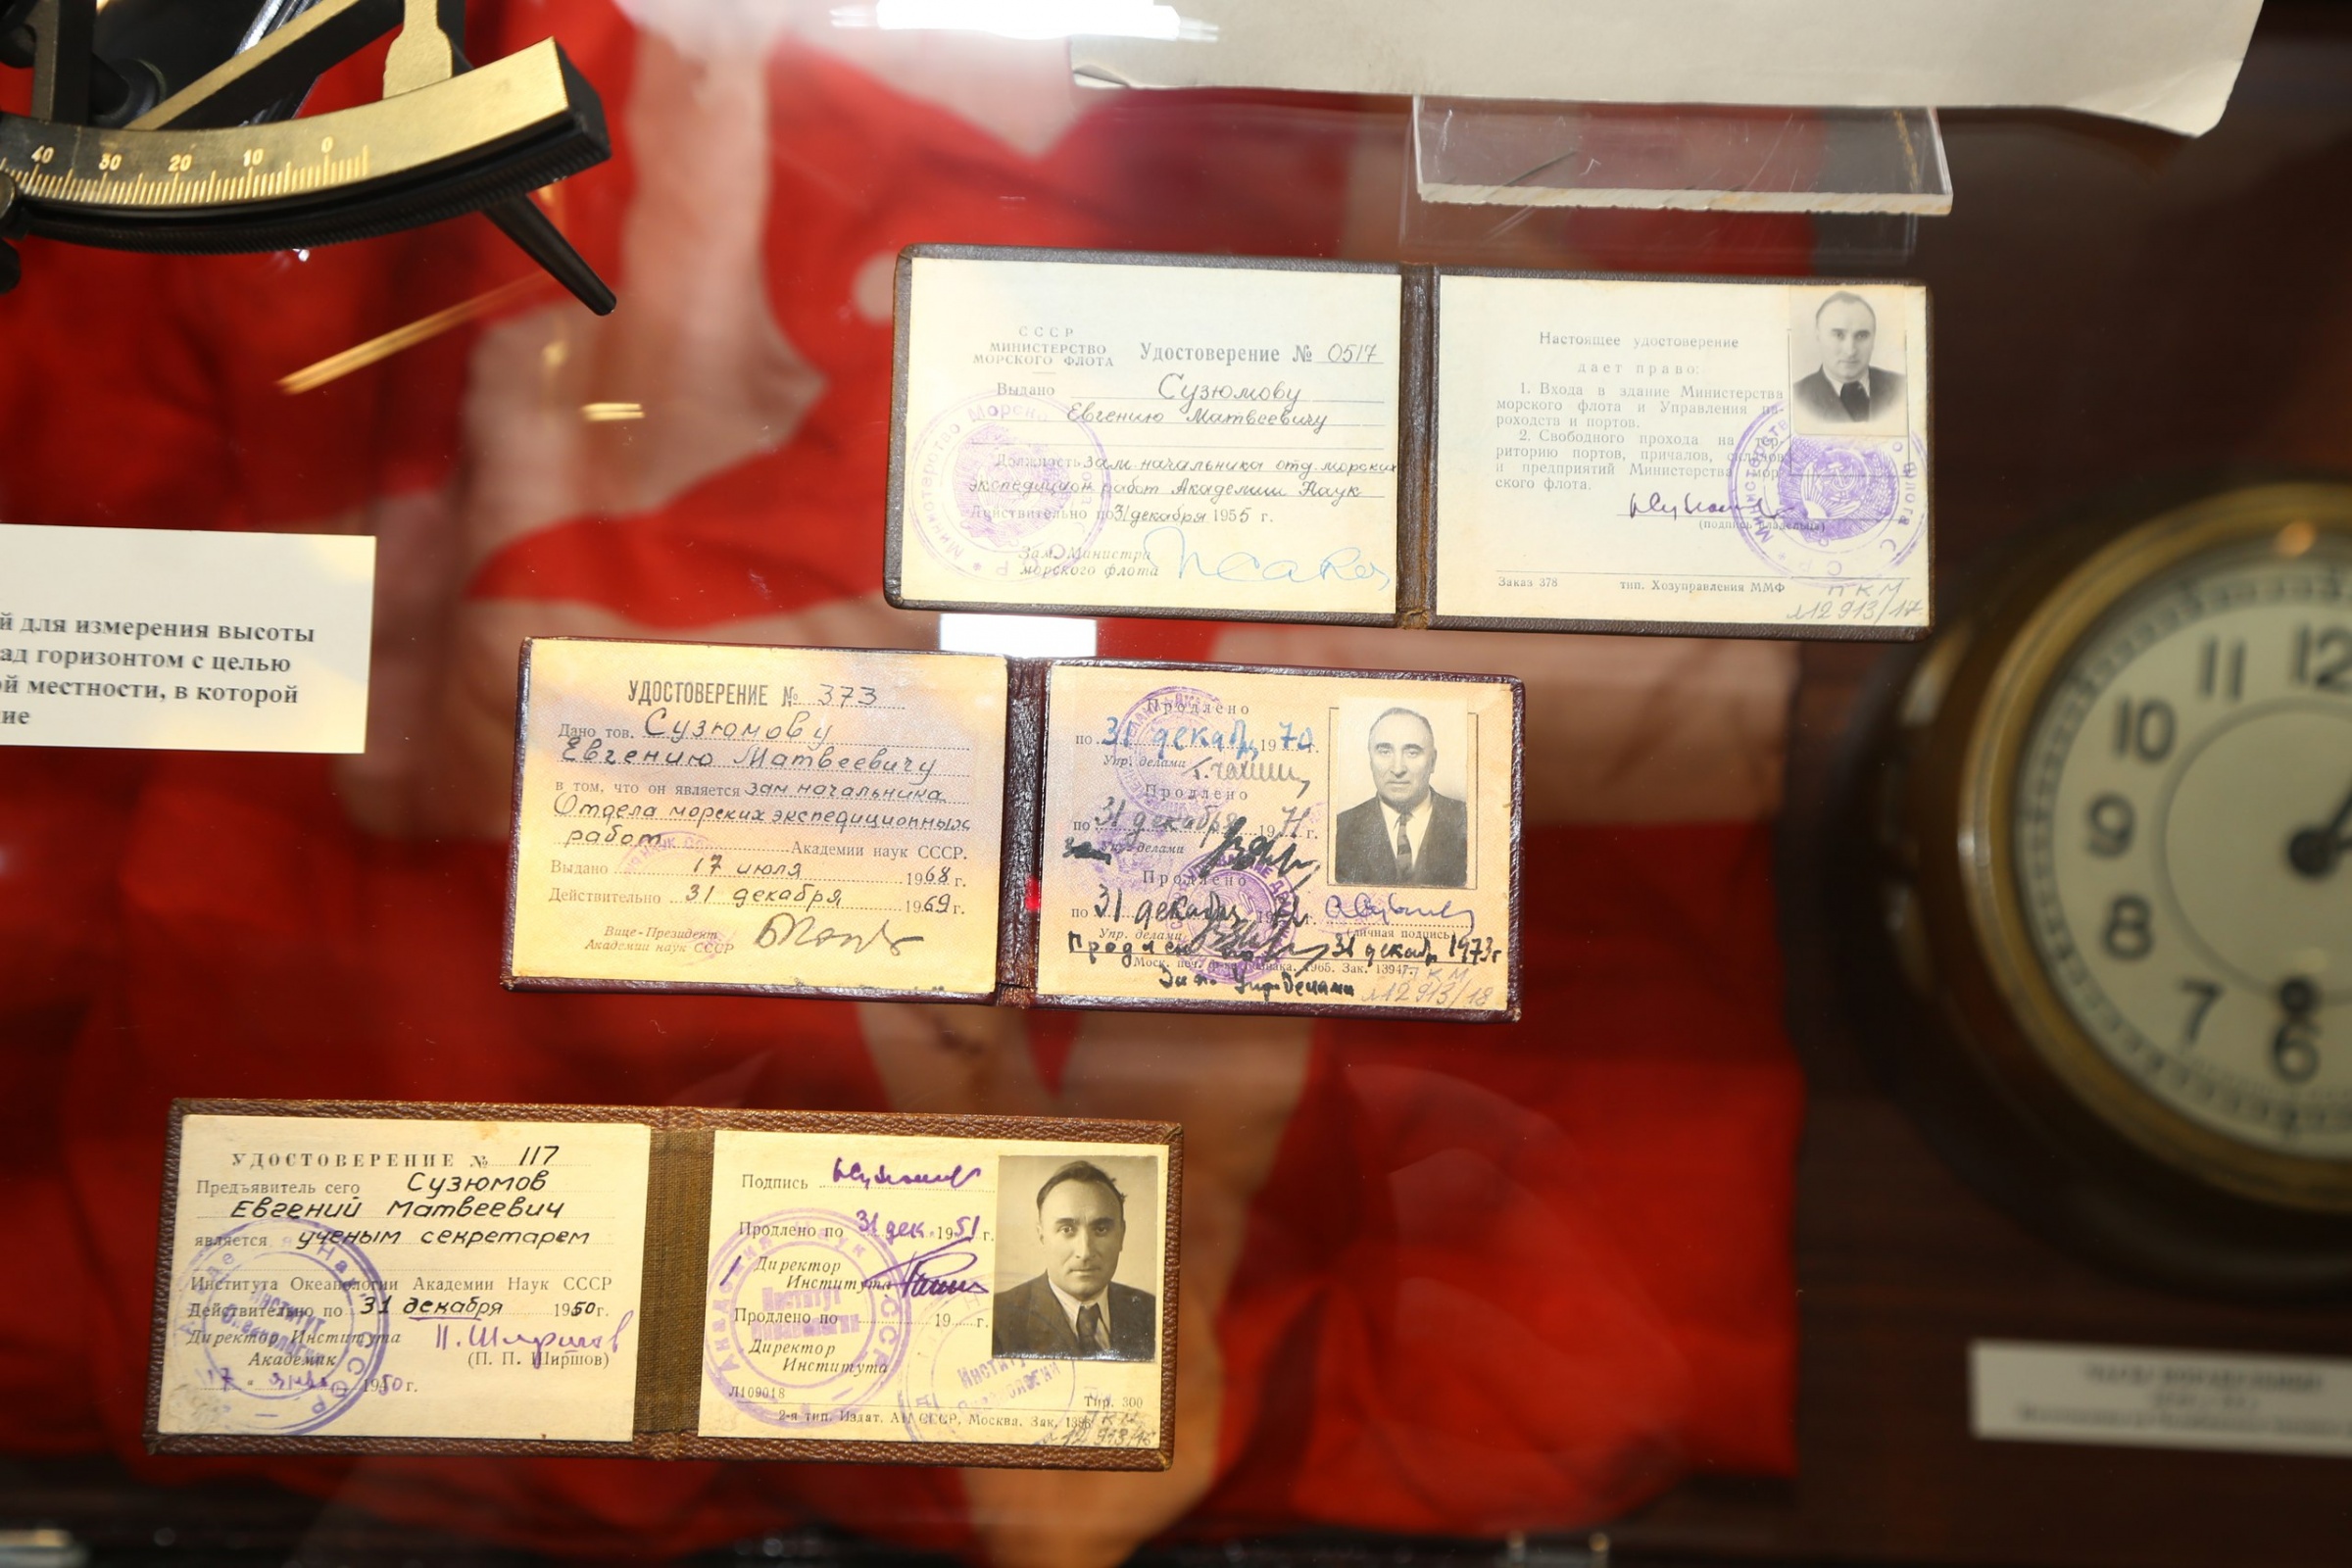 40 30 20 10 0
й для измерения высоты
ад горизонтом с целью
ой местности, в которой
ие
СССР
МИНИСТЕРСТВО
МОРСКОГО ФЛОТА
Удостоверение № 0517
Выдано Сузюмову
Евгению Матвеевичу
Должность зам. начальника отд. морских
экспедицион работ Академии Наук
Действительно по 31 декабря 1955 г.
Зам. Министра
морского флота
Настоящее удостоверение
дает право:
1. Входа в здание Министерства
морского флота и Управления па-
роходств и портов.
2. Свободного прохода на тер-
риторию портов, причалов, складов
и предприятий Министерства мор-
ского флота.
(подпись владельца)
Заказ 378 тип. Хозуправления ММФ
ПКМ
12913/17
УДОСТОВЕРЕНИЕ № 373
Дано тов. Сузюмову
Евгению Матвеевичу
в том, что он является зам начальника
Отдела морских экспедиционных
работ Академии наук СССР.
Выдано 17 июля 1968 г.
Действительно 31 декабря 1969 г.
Вице-Президент
Академии наук СССР
Продлено
по 31 декабря 1970 г.
Упр. делами
Продлено
по 31 декабря 1971 г.
Зам Упр. делами
Продлено
по 31 декабря 19 г.
Упр. делами
(личная подпись)
Продлено по 31 декабр 1973 г
1965. Зак. 13947.
Зам. Упр. Делами
ПКМ
12913/18
УДОСТОВЕРЕНИЕ № 117
Предъявитель сего Сузюмов
Евгений Матвеевич
является ученым секретарем
Института Океанологии Академии Наук СССР
Действительно по 31 декабря 1950 г.
Директор Института
Академик
(П. П. Ширшов)
1950 г.
Подпись
Продлено по 31 дек. 1951 г.
Директор
Института
Продлено по 19 г.
Директор
Института
Л109018
Тир. 300
2-я тип. Издат. АН СССР, Москва. Зак.
11 12
10
9
8
7
6